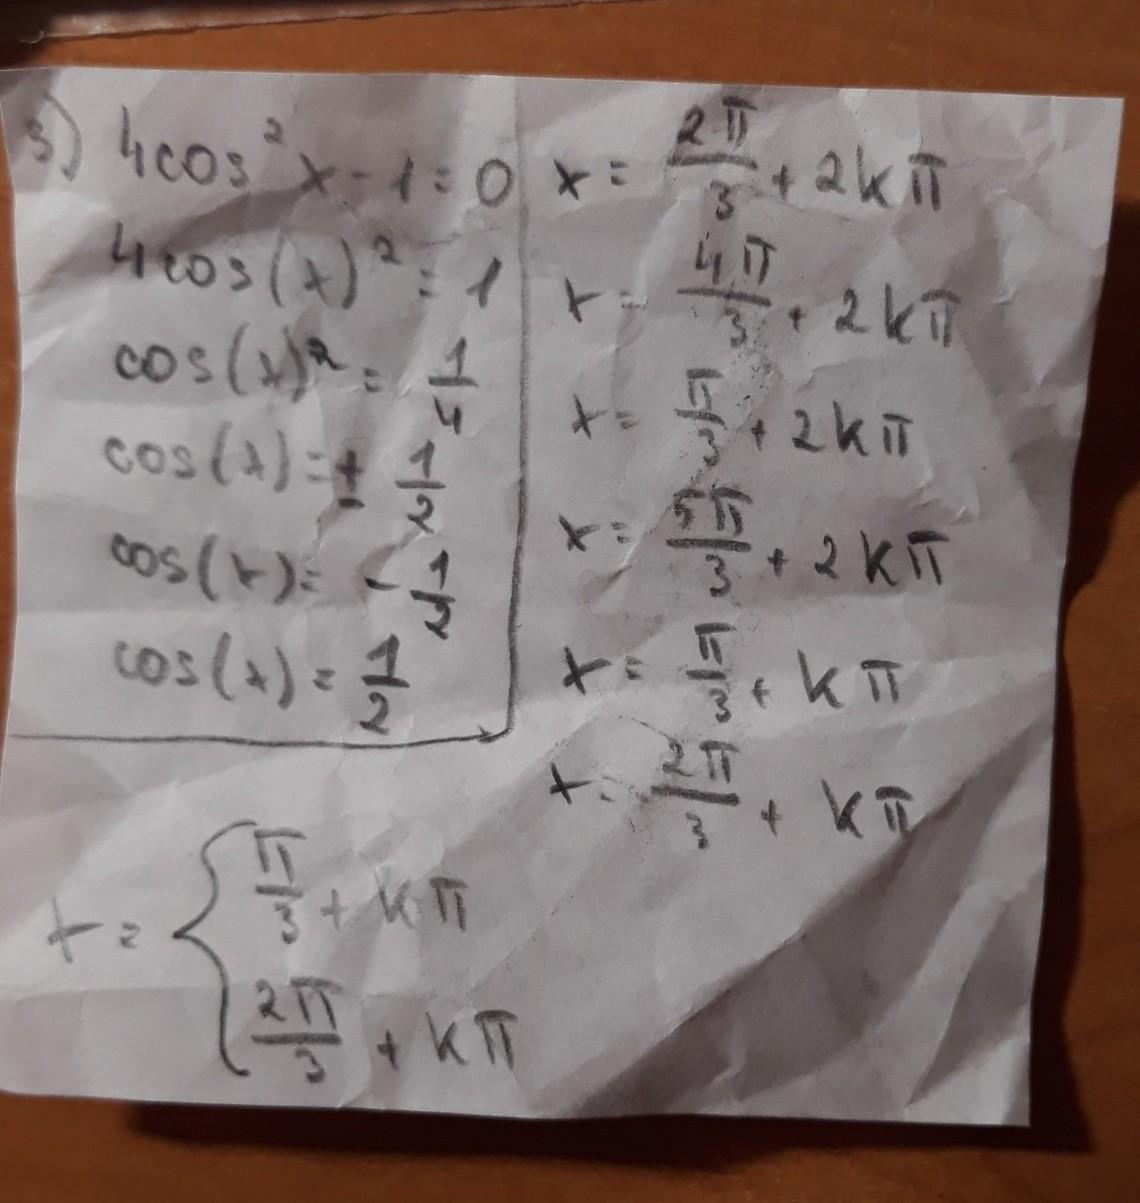 3) 4cos²x-1=0
4cos(x)²=1
cos(x)²=1/4
cos(x)=±1/2
cos(x)=-1/2
cos(x)=1/2
x=2π/3+2kπ
x=4π/3+2kπ
x=π/3+2kπ
x=5π/3+2kπ
x=π/3+kπ
x=2π/3+kπ
x={π/3+kπ
2π/3+kπ